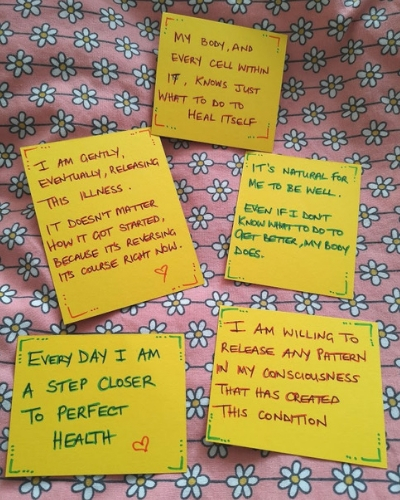 MY BODY, AND
EVERY CELL WITHIN
IT, KNOWS JUST
WHAT TO DO TO
HEAL ITSELF
I AM GENTLY,
EVENTUALLY, RELEASING
THIS ILLNESS.
IT DOESN'T MATTER
HOW IT GOT STARTED,
BECAUSE IT'S REVERSING
ITS COURSE RIGHT NOW.
IT'S NATURAL FOR
ME TO BE WELL.
EVEN IF I DON'T
KNOW WHAT TO DO TO
GET BETTER, MY BODY
DOES.
EVERY DAY I AM
A STEP CLOSER
TO PERFECT
HEALTH
I AM WILLING TO
RELEASE ANY PATTERN
IN MY CONSCIOUSNESS
THAT HAS CREATED
THIS CONDITION